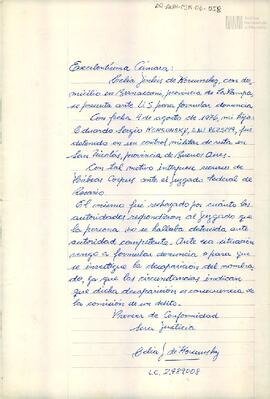 Excelentísima Cámara:
Celia Jinkis de Korsunsky, con do-
micilio en Bernasconi, provincia de La Pampa,
se presenta ante U.S. para formular denuncia
Con fecha 4 de agosto de 1976, mi hijo
Eduardo Sergio KORSUNSKY, DNI
detenido en un control militar de ruta en
San Nicolás, provincia de Buenos Aires.
Con tal motivo interpuse recurso de
Hábeas Corpus ante el juzgado Federal de
Rosario
El mismo fue rechazado por cuanto las
autoridades respondieron al juzgado que
la persona no se hallaba detenida ante
autoridad competente. Ante esa situación
vengo a formular denuncia para que
se investigue la desaparición del nombra-
do, ya que las circunstancias indican
que dicha desaparición es consecuencia de
la comisión de un delito.
Proveer de Conformidad
Será Justicia
Celia J de Korsunsky
L.C. 2989008